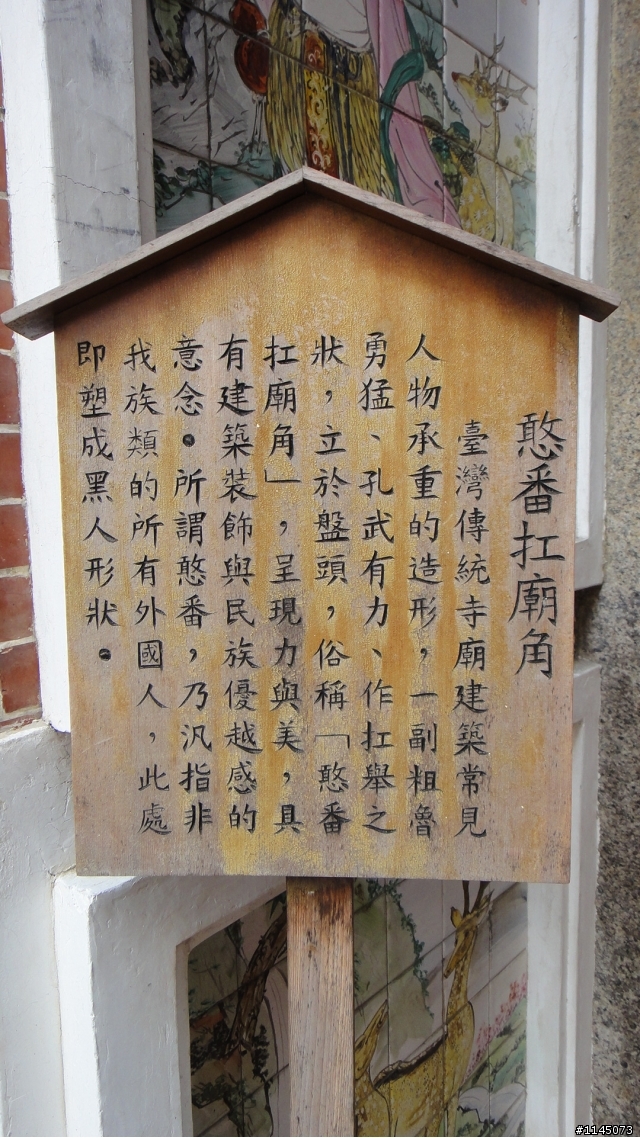 憨番扛廟角
臺灣傳統寺廟建築常見
人物承重的造形，一副粗魯
勇猛、孔武有力、作扛舉之
狀，立於盤頭，俗稱「憨番
扛廟角」，呈現力與美，具
有建築裝飾與民族優越感的
意念。所謂憨番，乃汎指非
我族類的所有外國人，此處
即塑成黑人形狀。
#1145073